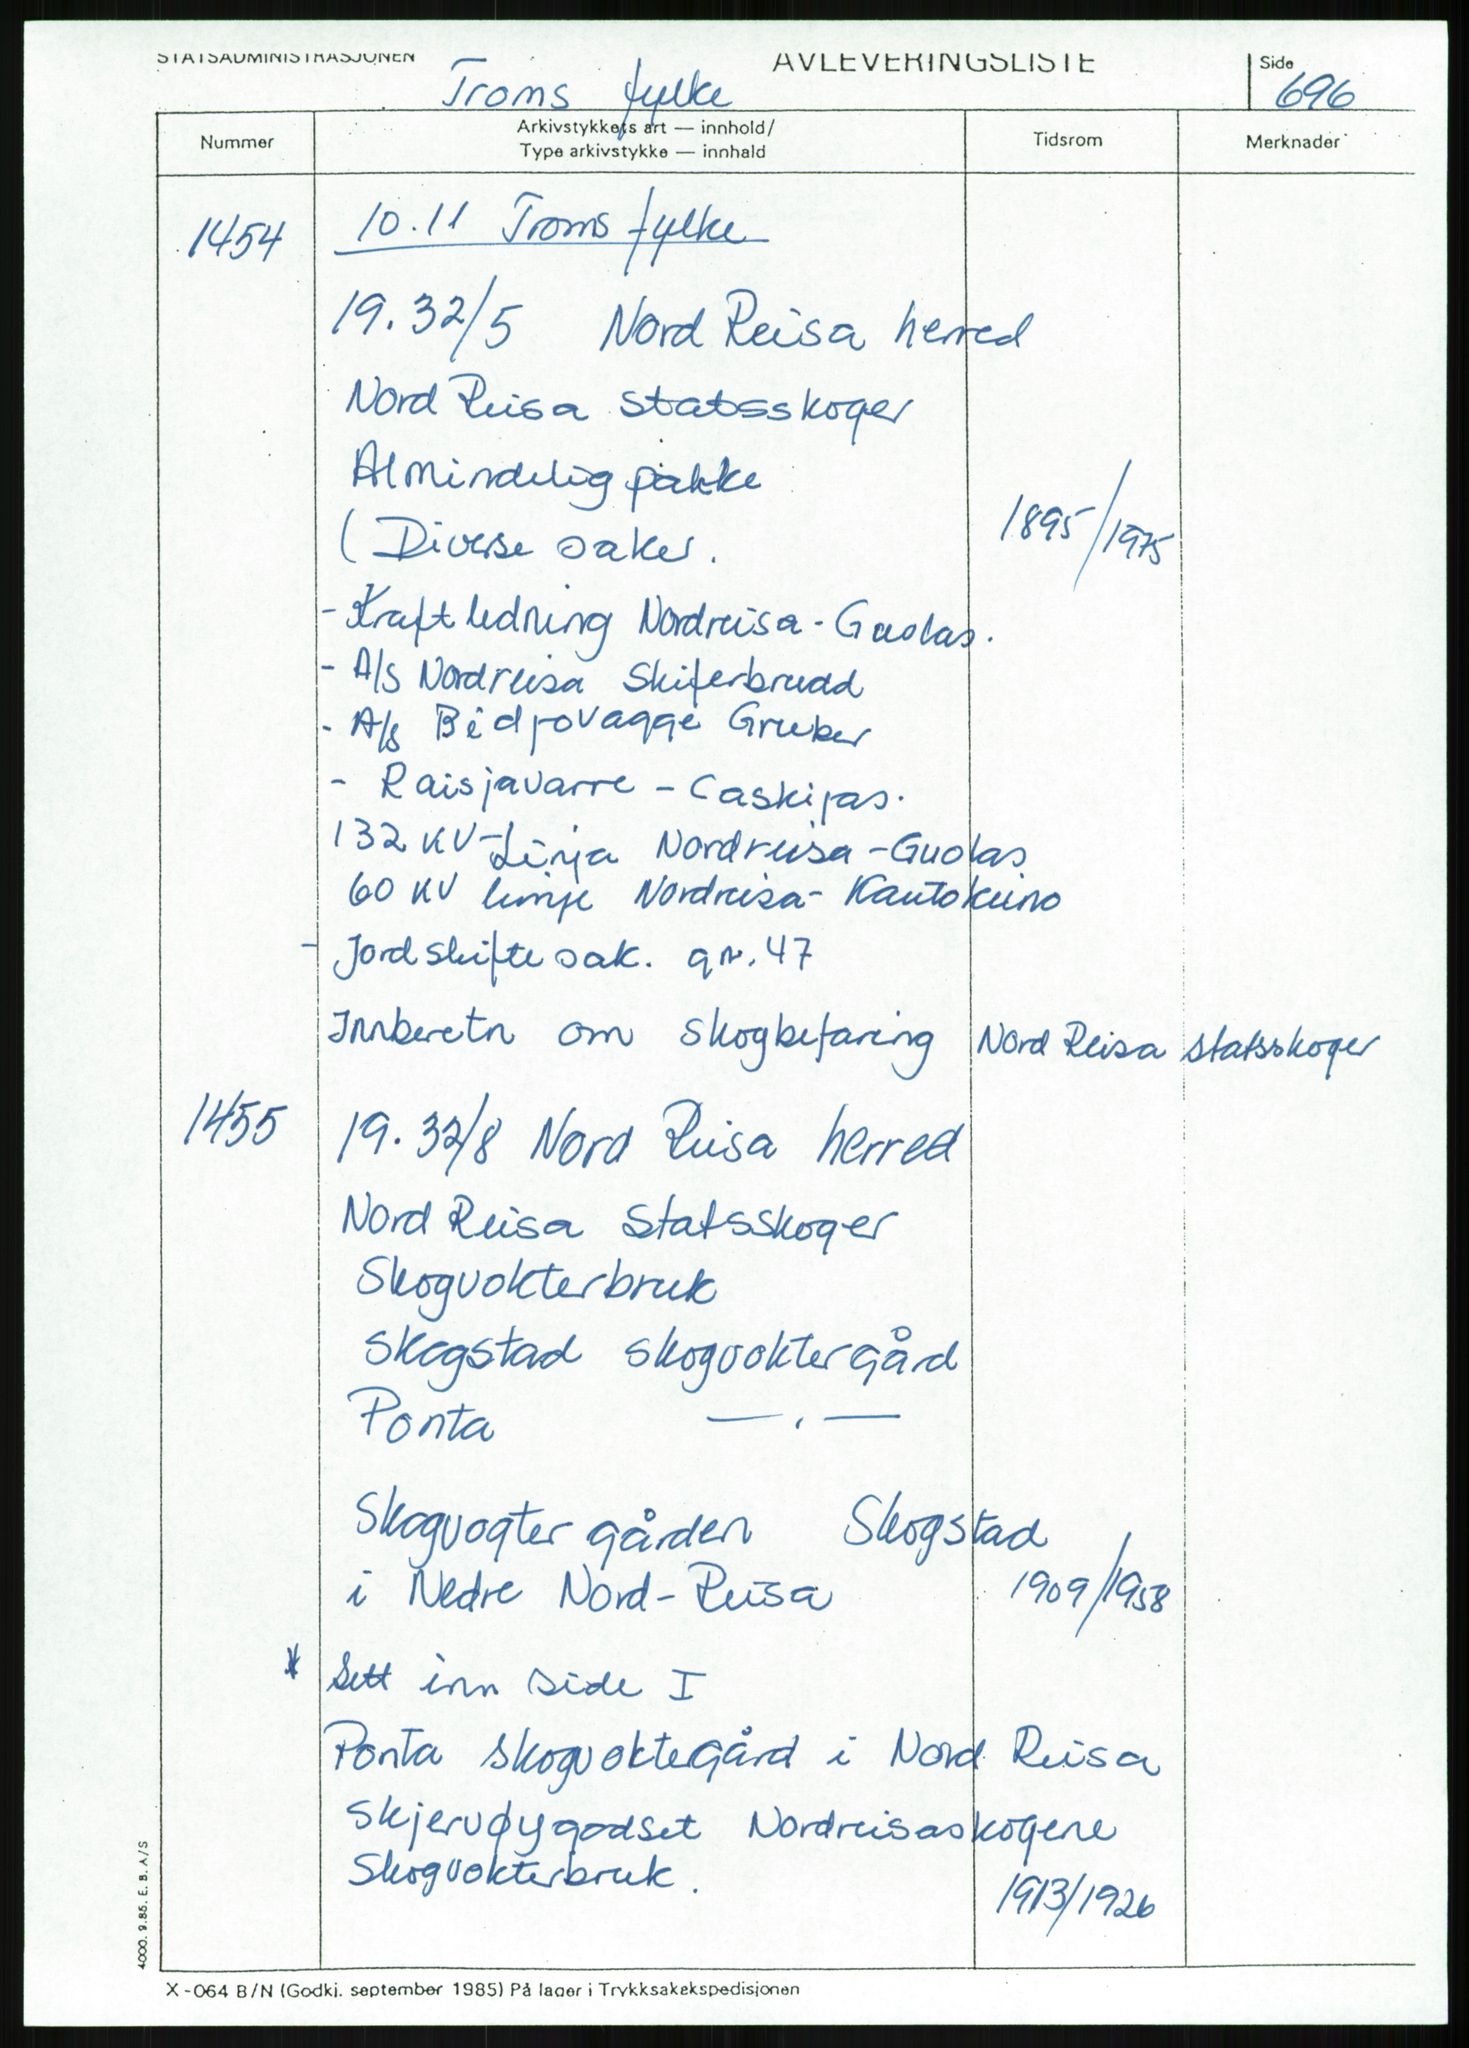 STATSADMINISTRASJONEN AVLEVERINGSLISTE Side
Troms fylke 696
Nummer Arkivstykkets art — innhold/ Tidsrom Merknader
Type arkivstykke — innhald
1454 10.11 Troms fylke
19.32/5 Nord Reisa herred
Nord Reisa statsskoger
Almindelig pakke
( Diverse saker. 1895/1975
- Kraftledning Nordreisa - Guolas.
- A/S Nordreisa Skiferbrudd
- A/S Bidjovagge Gruber
- Raisjavarre - Caskijas.
132 KV-Linja Nordreisa - Guolas
60 KV linje Nordreisa - Kautokeino
- Jordskifte sak. gnr. 47
Innberetn om skogbefaring Nord Reisa statsskoger
1455 19.32/8 Nord Reisa herred
Nord Reisa Statsskoger
Skogvokterbruk
Skogstad skogvoktergård
Ponta —.—
Skogvogter gården Skogstad
i Nedre Nord-Reisa 1909/1958
* Sett inn side I
Ponta skogvoktergård i Nord Reisa
Skjervøygodset Nordreisaskogene
Skogvokterbruk. 1913/1926
4000. 9.85. E. B. A/S
X-064 B/N (Godkj. september 1985) På lager i Trykksakekspedisjonen